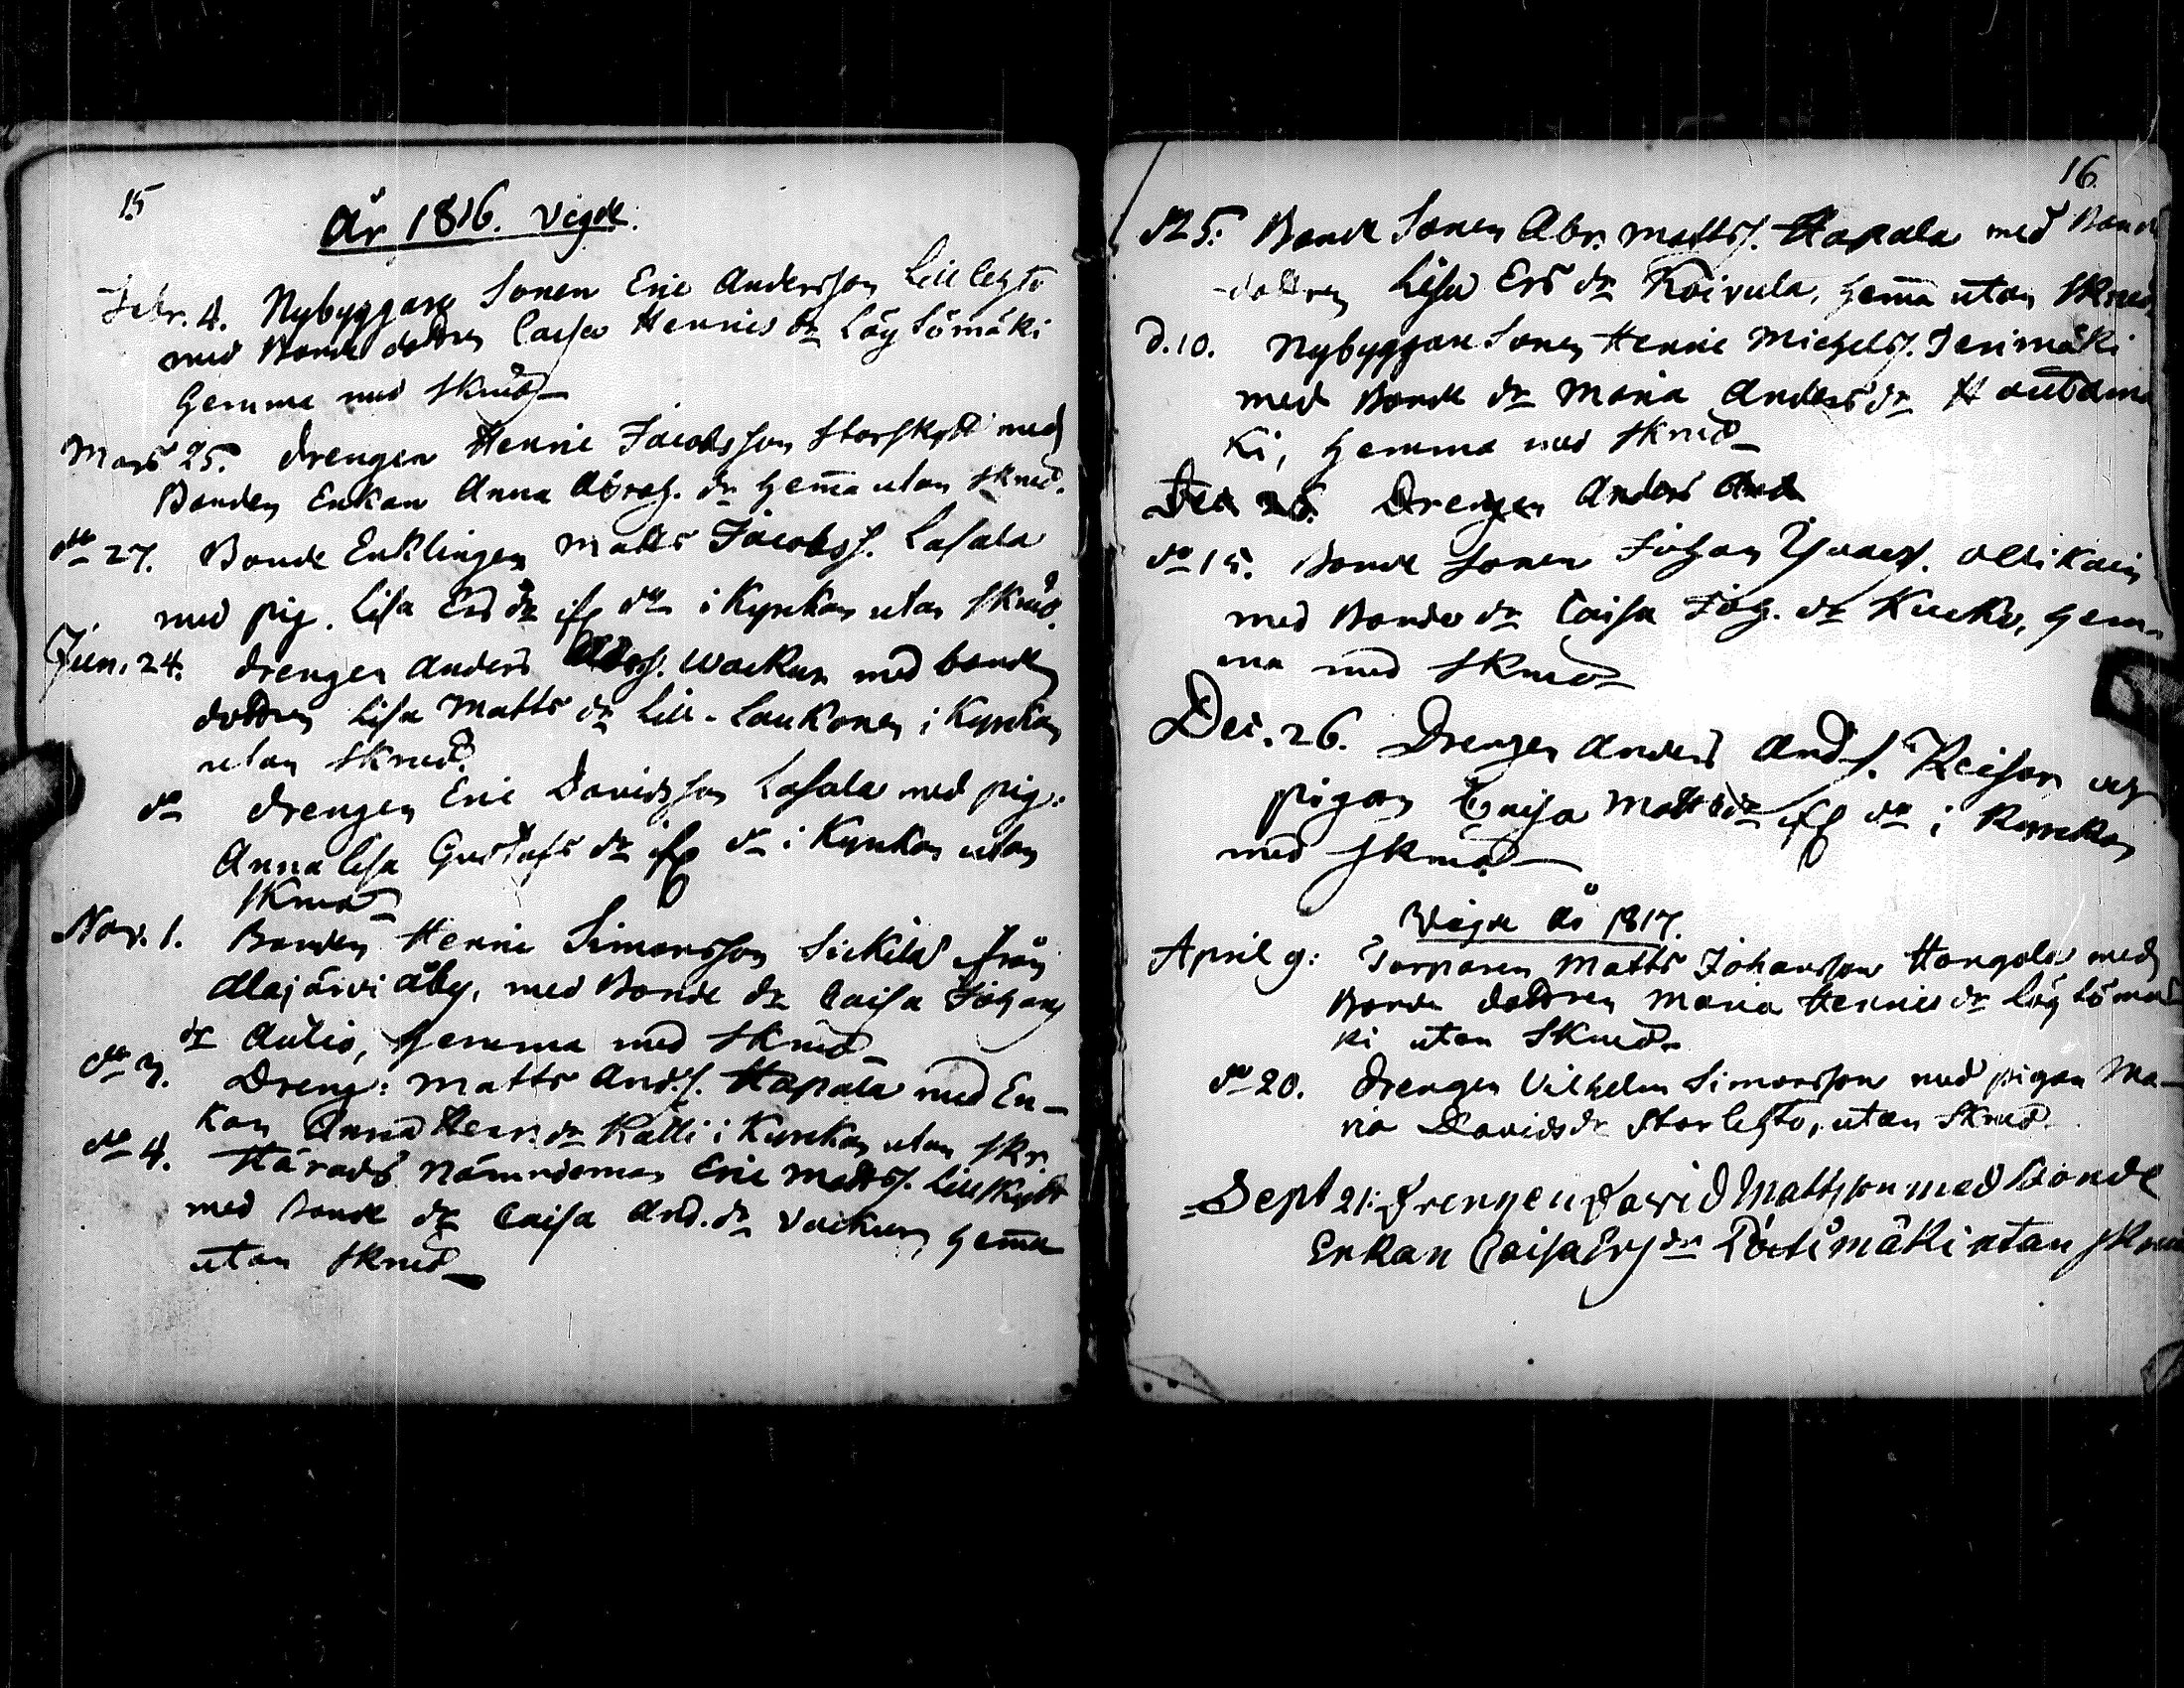 15
År 1816. Vigde.
Febr. 4. Nybyggare Sonen Eric Andersson Lill lehto
med Bonde dottren Caisa Henrics dr Löytömäki
hemma med skrud
Mars 25. drengen Henric Jacobsson Storskytt med
Bonden Enkan Anna Abrah. dr hema utan skrud.
do 27. Bonde Enklingen Matts Jacobss. Lasala
med pig. Lisa Ers dr ifr do i Kyrkan utan skrud.
Jun. 24. drengen Anders wackur med bonde
dottren Lisa Matts dr Lill-Laukonen i Kyrkan
utan skrud.
do drengen Eric Davidsson Lasala med pig:
Anna Lisa Gustafs dr ifr do i Kyrkan utan
skrud
Nov. 1. Bonden Henric Simonsson Sickilä från
Alajärvi åby, med Bonde dr Caisa Johans
dr Aulio, hemma med skrud
do 3. Dreng: Matts And.s. Hapala med En-
kan Anna Henr. dr Kalli i Kyrkan utan skr.
do 4. Härads Nämndeman Eric Matts s. Lillskytt
med Bonde dr Caisa And. dr Vackur hema
utan skrud
16.
d 5. Bonde Sonen Abr. Matts s. Hapala med Bonde
dottren Lisa Ers dr Koivula, hema utan skrud.
d. 10. Nybyggare Sonen Henric Michels s. Terimäki
med Bonde dr Maria Anders dr Hautamä
ki, hemma med skrud
Dec 26. Drengen Anders And
do 15. Bonde Sonen Johan Ollikain
med Bonde dr Caisa Joh. dr Kucko, hem-
ma med skrud
Dec. 26. Drengen Anders And. s. Keisar och
pigan Caisa Matts dr ifr do i Kyrkan
med skrud
Vigde År 1817.
April 9: Torparen Matts Johansson Hangala med
Bonde dottren Maria Henrics dr Löytömä
ki utan skrud
do 20. drengen Vilhelm Simonsson med pigan Ma-
ria Davids dr Storlehto, utan skrud
Sept 21: drengen David Mattsson med Bonde
Enkan Caisa Ers dr utan skrud